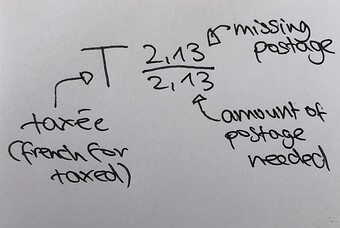 T 2,13
2,13
missing
postage
taxée
(french for
taxed)
amount of
postage
needed